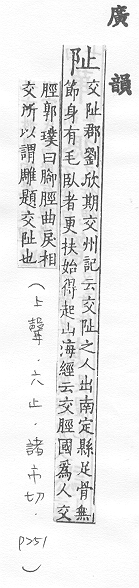 廣韻
阯
交阯郡劉欣期交州記云交阯之人出南定縣足骨無
節身有毛臥者更扶始得起山海經云交脛國爲人交
脛郭璞曰腳脛曲戾相
交所以謂雕題交阯也
(上聲.六止.諸市切.
P251)